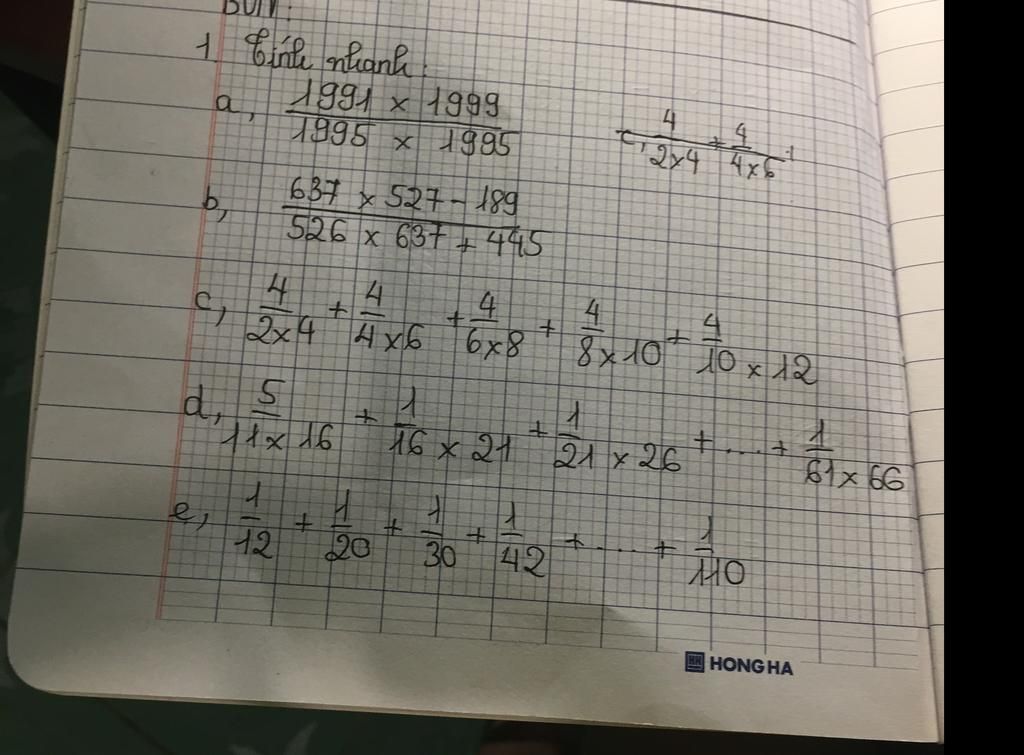 1. Tính nhanh:
a, 1991 x 1999 / 1995 x 1995
c, 4/2x4 + 4/4x6 +
b, 637 x 527 - 189 / 526 x 637 + 445
c, 4/2x4 + 4/4x6 + 4/6x8 + 4/8x10 + 4/10x12
d, 5/11x16 + 1/16x21 + 1/21x26 + .... + 1/61x66
e, 1/12 + 1/20 + 1/30 + 1/42 + .... + 1/110
HONG HA